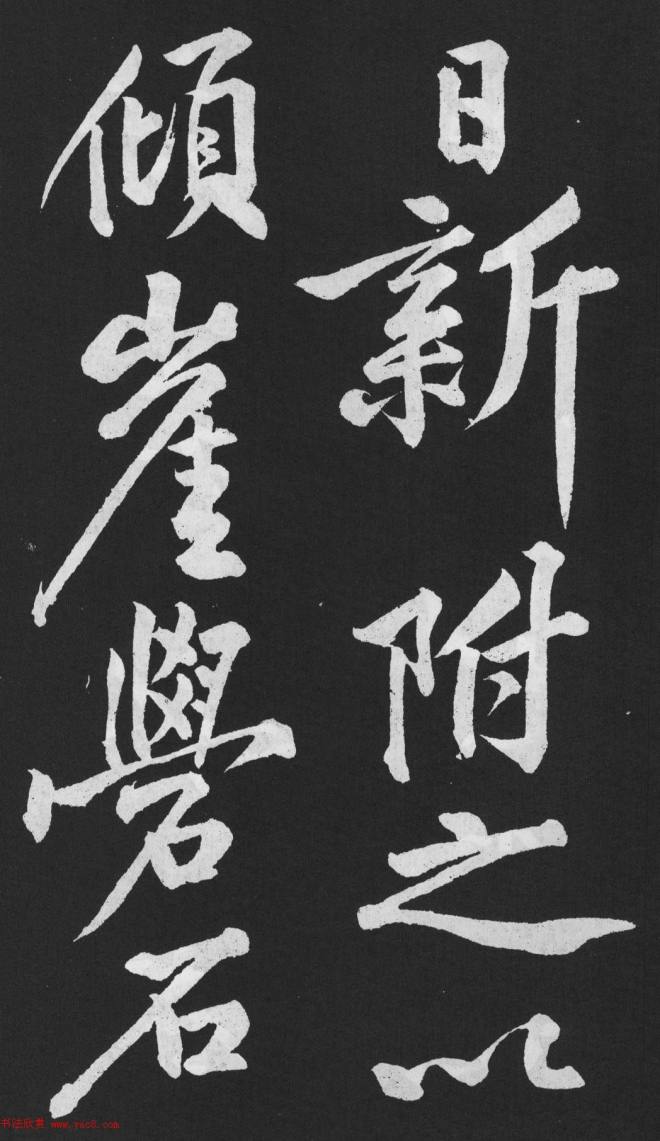 日新附之以
傾崖礐石
书法欣赏 www.yac8.com